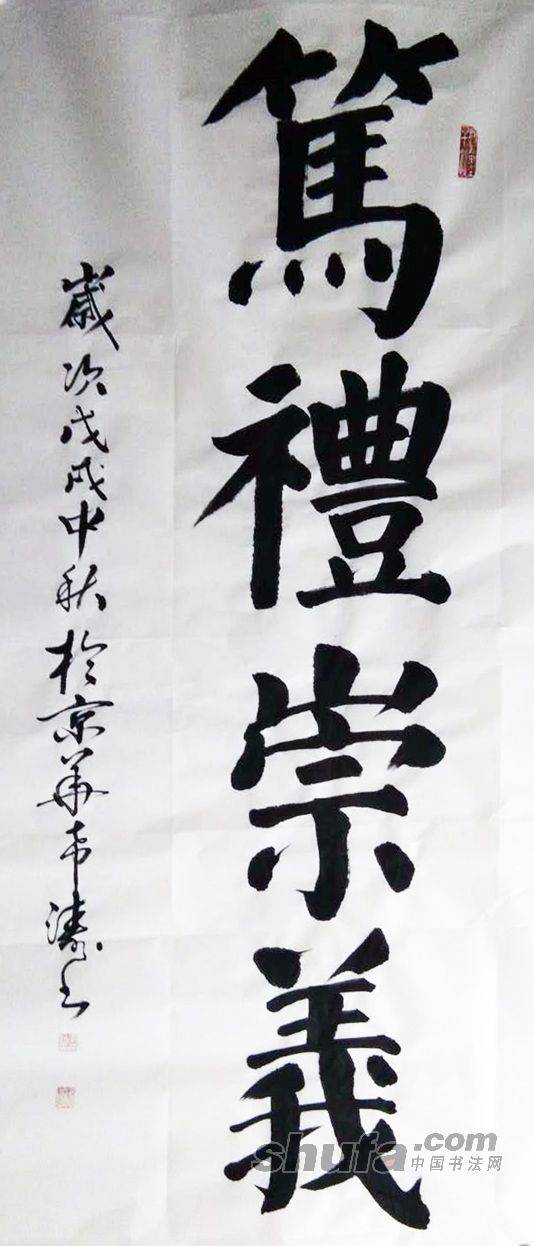 篤禮崇義
歲次戊戌中秋於京華韦濤書
shufa.com
中国书法网